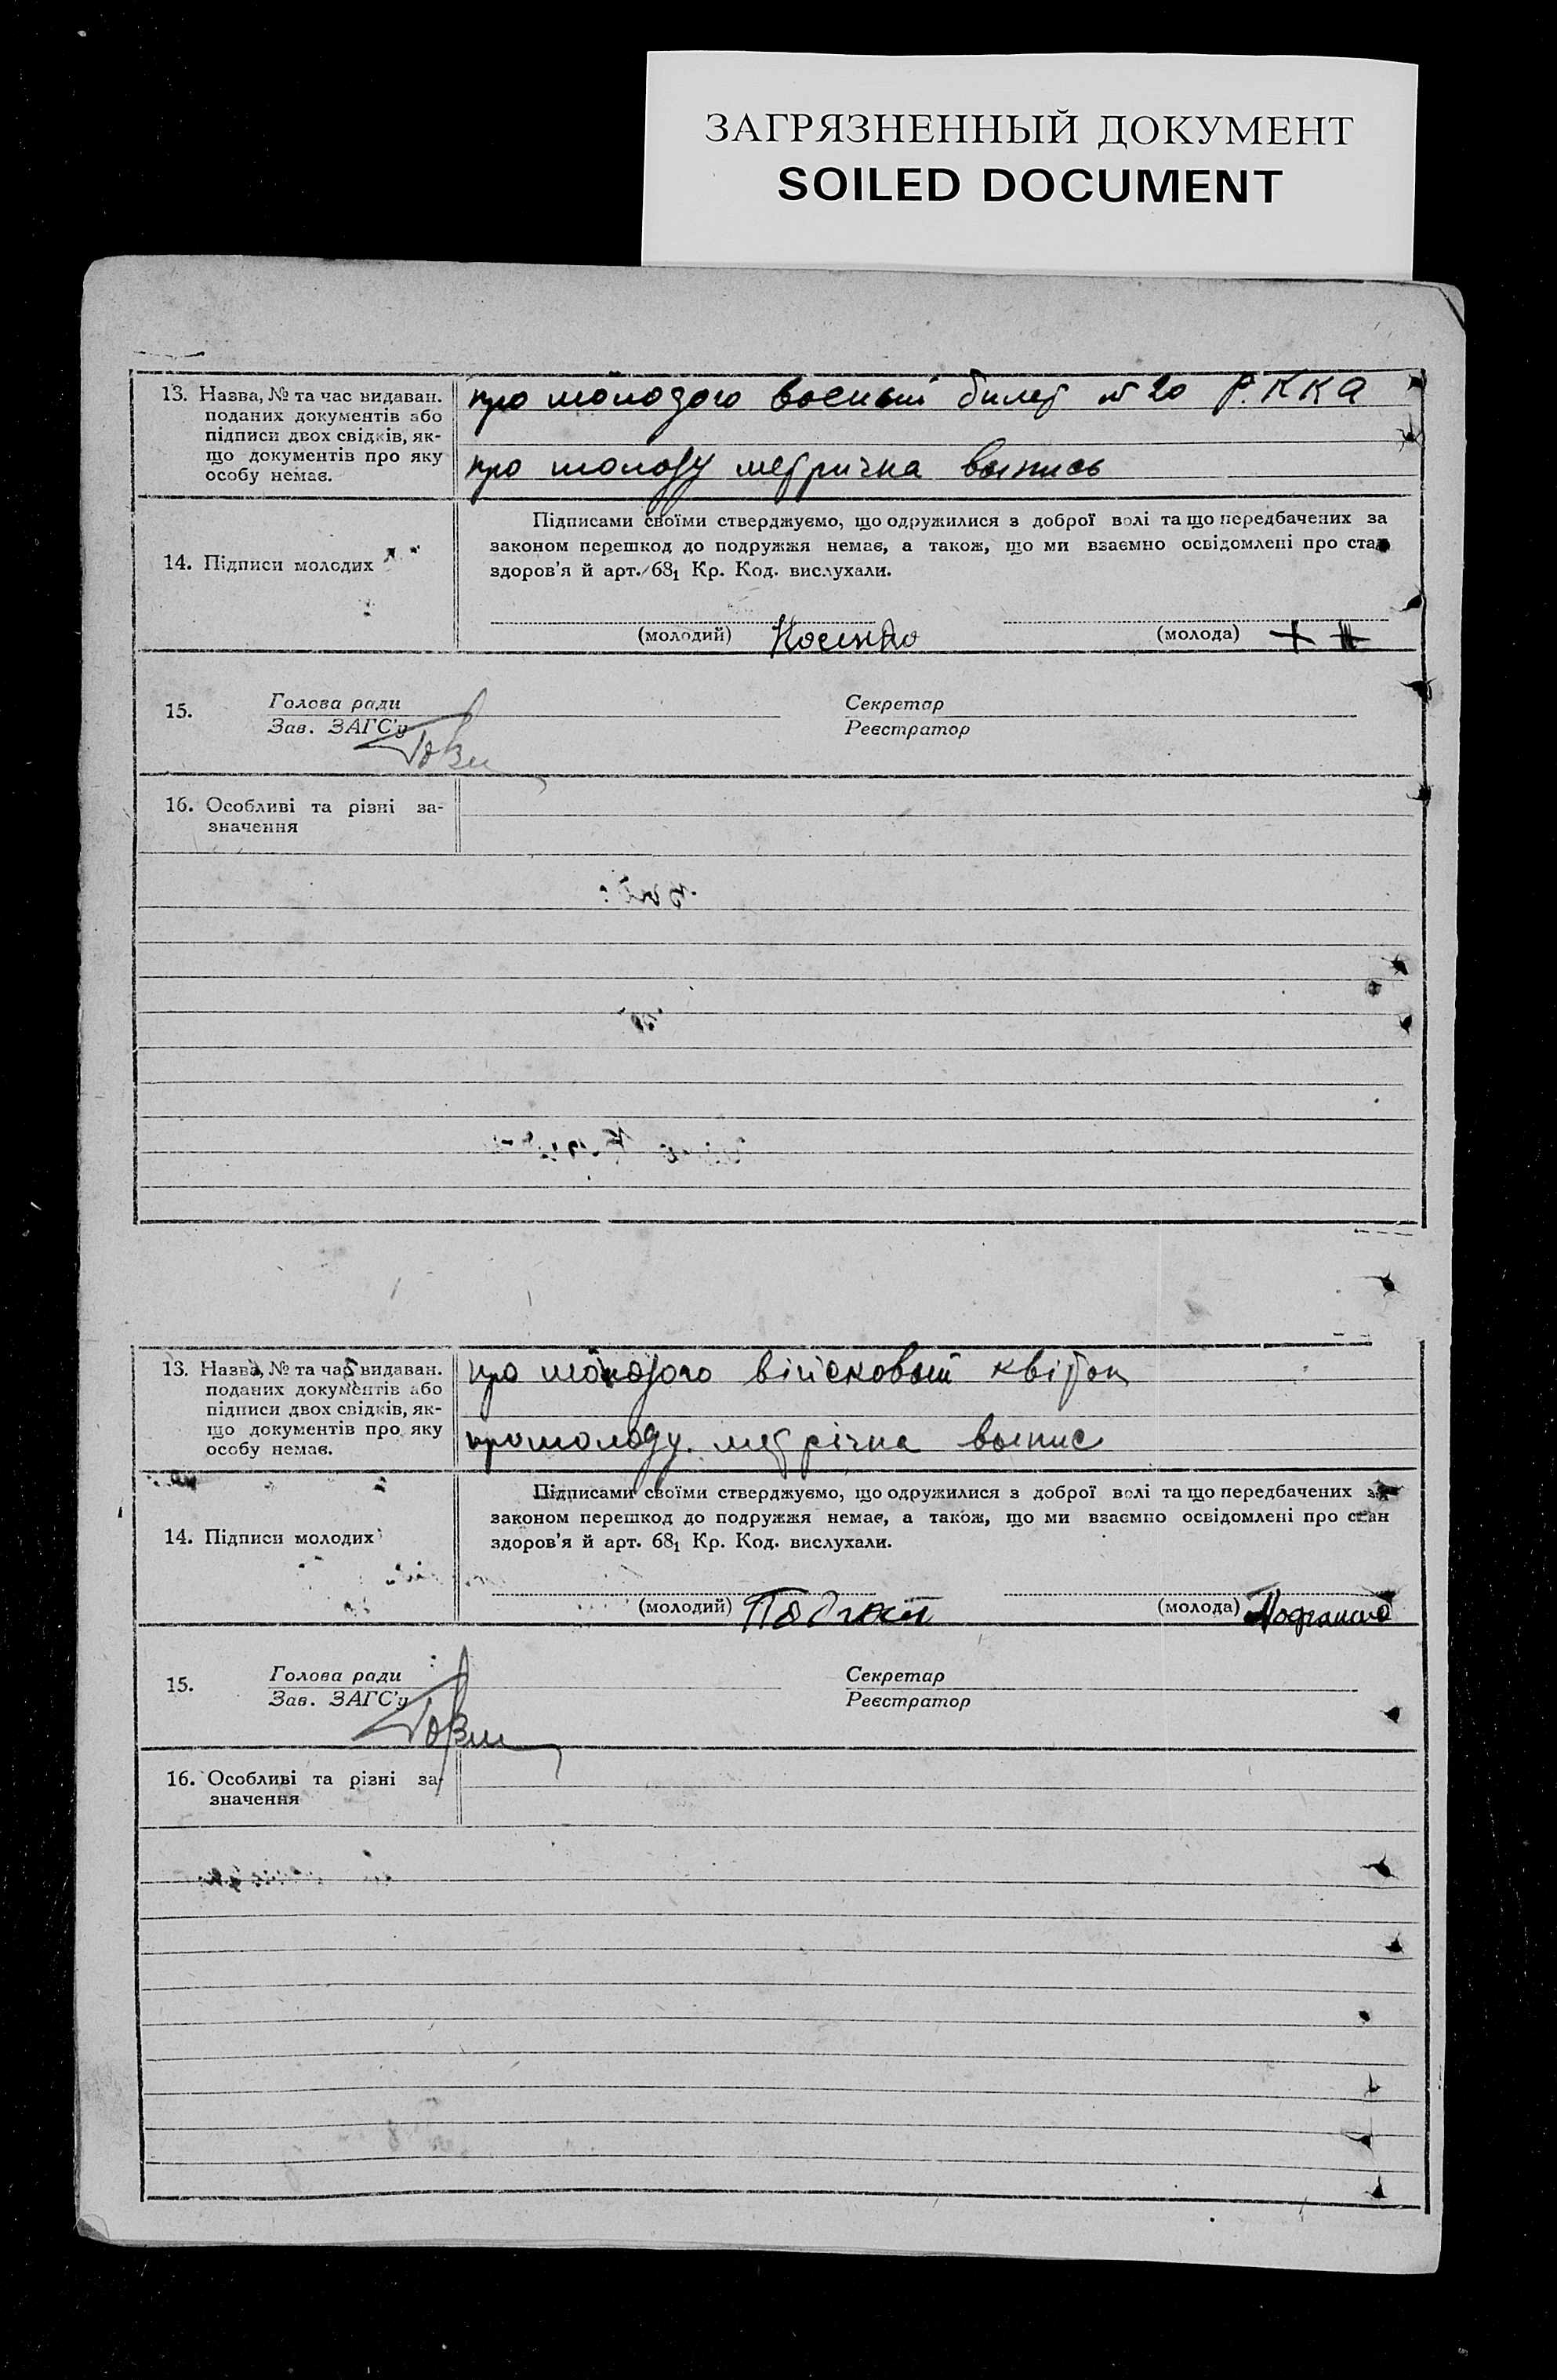 ЗАГРЯЗНЕННЫЙ ДОКУМЕНТ
SOILED DOCUMENT
13. Назва, № та час видаван. поданих документів або підписи двох свідків, якщо документів про яку особу немає.
про молодого воєный билет № 20 Р.К.К.А
про молоду метрична выпись
14. Підписи молодих
Підписами своїми стверджуємо, що одружилися з доброї волі та що передбачених за
законом перешкод до подружжя немає, а також, що ми взаємно освідомлені про стан
здоров'я й арт. 68₁ Кр. Код. вислухали.
(молодий) Носенко (молода) + +
15. Голова ради Секретар
Зав. ЗАГС'у Реєстратор
16. Особливі та різні за-
значення
13. Назва, № та час видаван.
поданих документів або
підписи двох свідків, як-
що документів про яку
особу немає.
про молодого війсковый квіток
про молоду метрічна выпис
14. Підписи молодих
Підписами своїми стверджуємо, що одружилися з доброї волі та що передбачених за
законом перешкод до подружжя немає, а також, що ми взаємно освідомлені про стан
здоров'я й арт. 68₁ Кр. Код. вислухали.
(молодий) (молода)
15. Голова ради Секретар
Зав. ЗАГС'у Реєстратор
16. Особливі та різні за-
значення